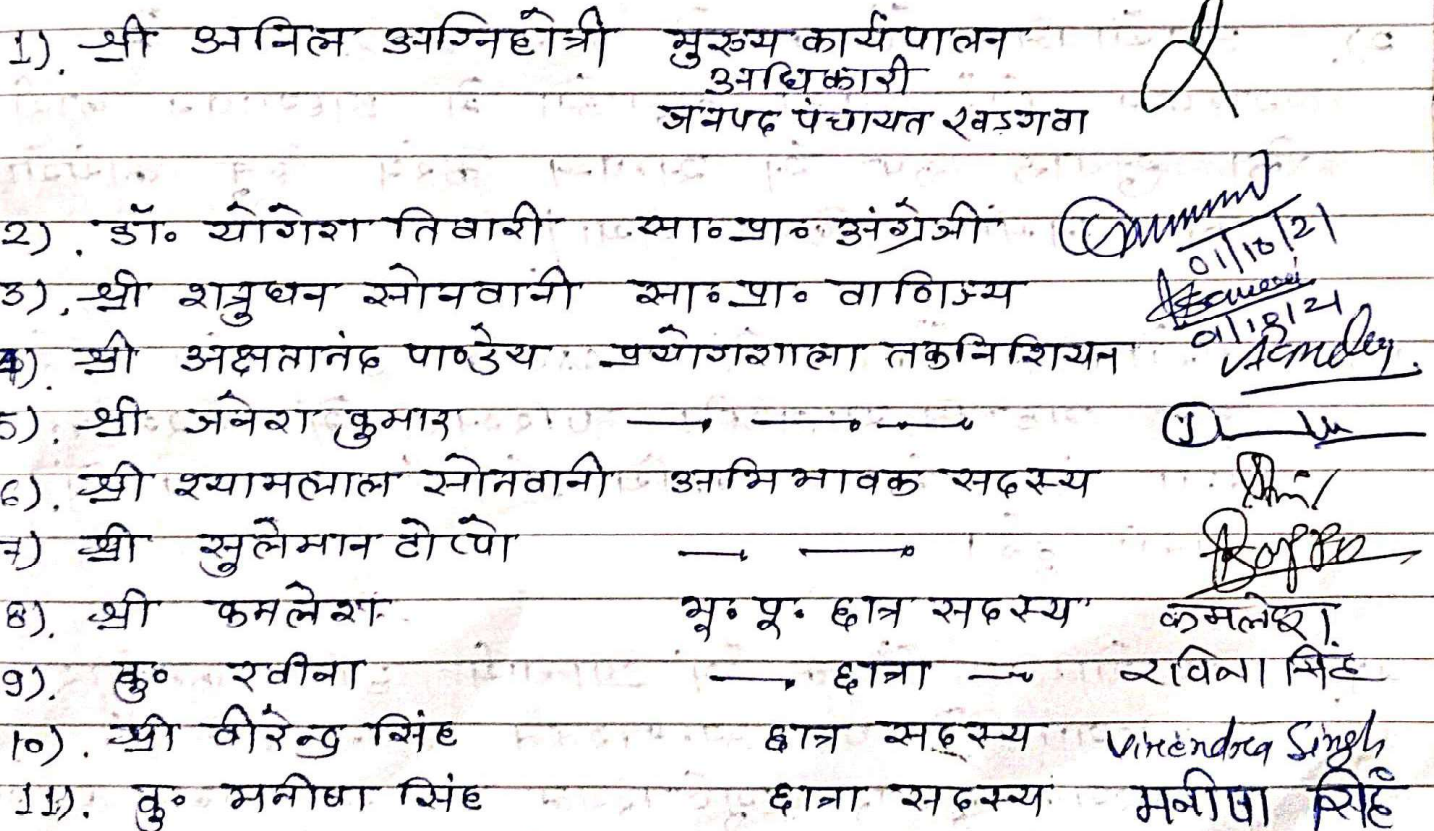 1). श्री अनिल अग्निहोत्री मुख्य कार्य पालन
अधिकारी
जनपद पंचायत खड़गवा
2). डॉ॰ योगेश तिवारी सा॰ प्रा॰ अंग्रेजी
01/10/21
3). श्री शत्रुधन सोनवानी सा॰ प्रा॰ वाणिज्य
01/10/21
4). श्री अक्षतानंद पाण्डेय प्रयोगशाला तकनिशियन
5). श्री जनेश कुमार
6). श्री श्यामलाल सोनवानी अभिभावक सदस्य
7) श्री सुलेमान टोप्पो
8). श्री कमलेश भू॰ पू॰ छात्र सदस्य कमलेश
9). कु॰ रवीना — छात्रा — रविना सिंह
10). श्री वीरेन्द्र सिंह छात्र सदस्य Virendra Singh
11). कु॰ मनीषा सिंह छात्रा सदस्य मनीषा सिंह